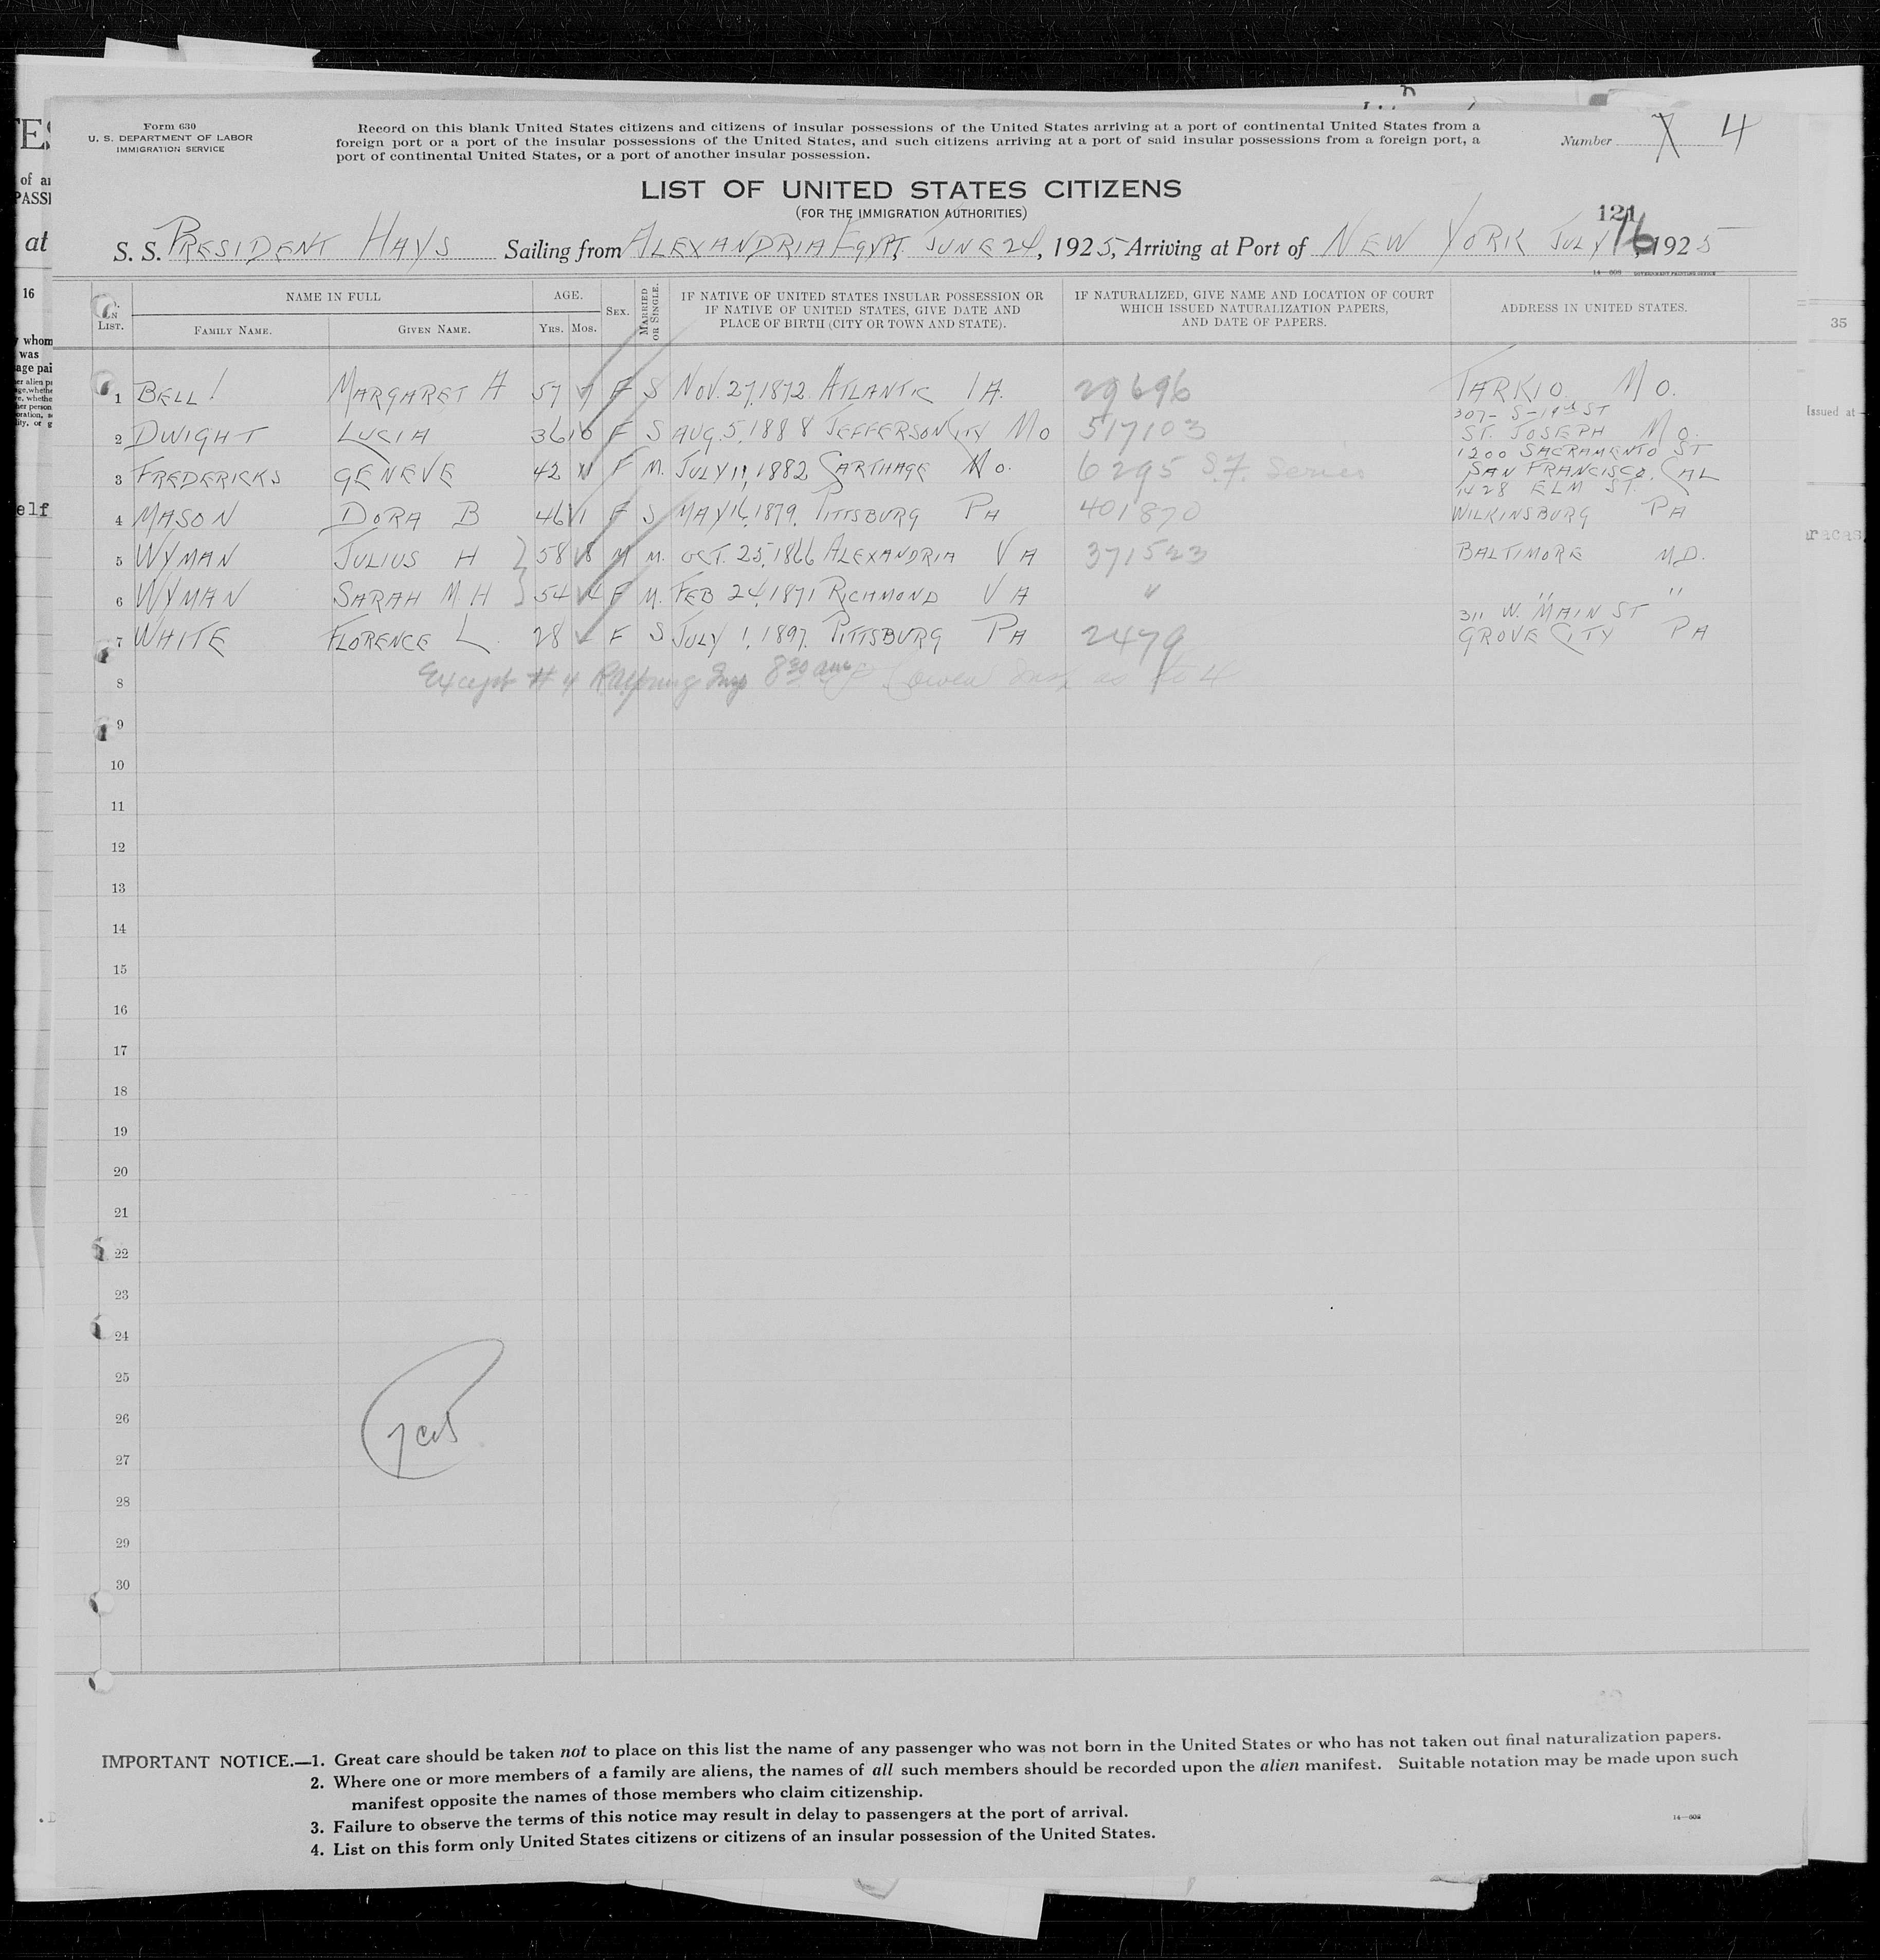 Form 630
U. S. DEPARTMENT OF LABOR
IMMIGRATION SERVICE
Record on this blank United States citizens and citizens of insular possessions of the United States arriving at a port of continental United States from a
foreign port or a port of the insular possessions of the United States, and such citizens arriving at a port of said insular possessions from a foreign port, a
port of continental United States, or a port of another insular possession.
Number 7 4
LIST OF UNITED STATES CITIZENS
(FOR THE IMMIGRATION AUTHORITIES)
121
S. S. PRESIDENT HAYS Sailing from ALEXANDRIA EGYPT. JUNE 24, 1925, Arriving at Port of NEW YORK JULY 16, 1925
14-608 GOVERNMENT PRINTING OFFICE
LIST.
NAME IN FULL
FAMILY NAME. GIVEN NAME.
AGE.
YRS. MOS.
SEX.
MARRIED OR SINGLE.
IF NATIVE OF UNITED STATES INSULAR POSSESSION OR
IF NATIVE OF UNITED STATES, GIVE DATE AND
PLACE OF BIRTH (CITY OR TOWN AND STATE).
IF NATURALIZED, GIVE NAME AND LOCATION OF COURT
WHICH ISSUED NATURALIZATION PAPERS,
AND DATE OF PAPERS.
ADDRESS IN UNITED STATES.
1 BELL MARGARET A 57 7 F S NOV. 27, 1872 ATLANTIC IA. 29696 TARKIO MO.
307- S-19th ST
2 DWIGHT LUCIA 36 10 F S AUG. 5, 1888 JEFFERSON CITY MO 517103 ST. JOSEPH MO.
1200 SACRAMENTO ST
3 FREDERICKS GENEVE 42 11 F M. JULY 11, 1882 CARTHAGE MO. 6295 S.F. Series SAN FRANCISCO, CAL
1428 ELM ST.
4 MASON DORA B 46 1 F S MAY 16, 1879. PITTSBURG PA 401870 WILKINSBURG PA
5 WYMAN JULIUS H 58 8 M M. OCT. 25, 1866 ALEXANDRIA VA 371523 BALTIMORE MD.
6 WYMAN SARAH M H 54 4 F M. FEB 24, 1871 RICHMOND VA " " "
311 W. MAIN ST
7 WHITE FLORENCE L 28 F S JULY 1, 1897. PITTSBURG PA 2479 GROVE CITY PA
8 Except # 4 8 30 am as to 4
9
10
11
12
13
14
15
16
17
18
19
20
21
22
23
24
25
26
27
28
29
30
IMPORTANT NOTICE.—1. Great care should be taken not to place on this list the name of any passenger who was not born in the United States or who has not taken out final naturalization papers.
2. Where one or more members of a family are aliens, the names of all such members should be recorded upon the alien manifest. Suitable notation may be made upon such
manifest opposite the names of those members who claim citizenship.
3. Failure to observe the terms of this notice may result in delay to passengers at the port of arrival.
4. List on this form only United States citizens or citizens of an insular possession of the United States.
14-608